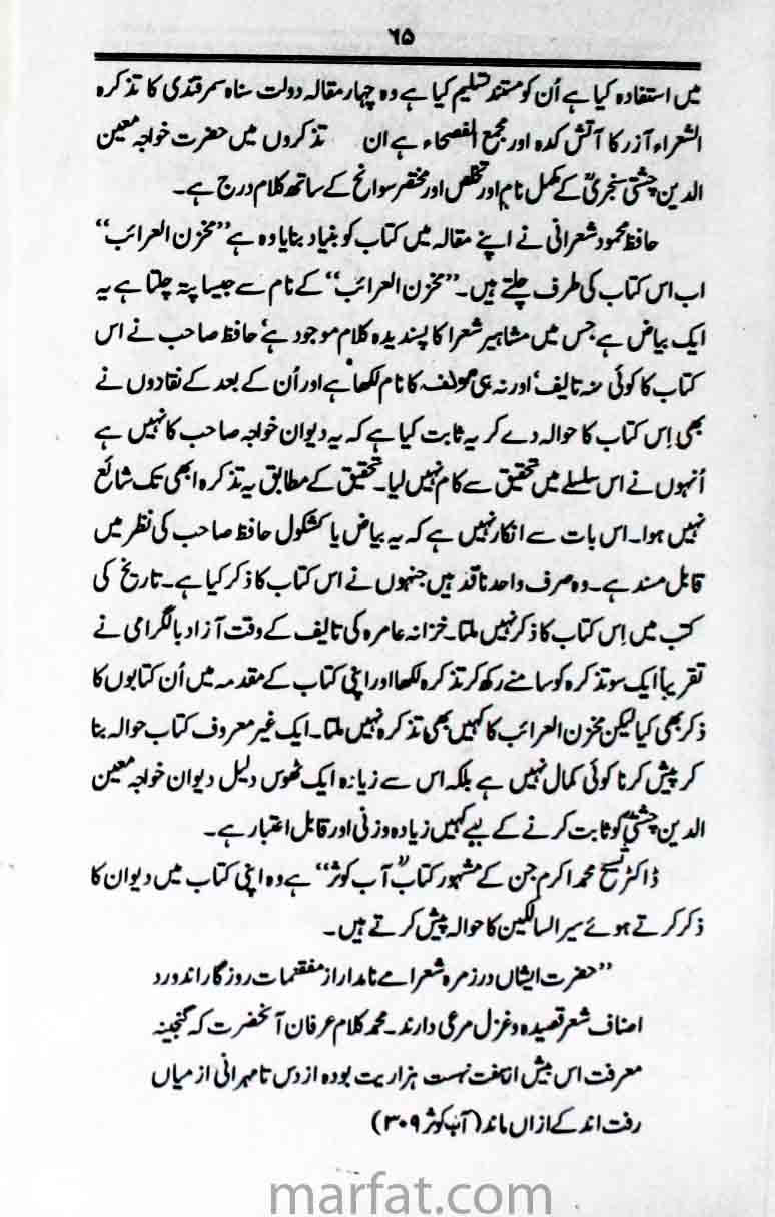 ۶۵
میں استفادہ کیا ہے اُن کو مستند تسلیم کیا ہے وہ چہار مقالہ دولت سناہ سمرقندی کا تذکرہ
الشعراء آزر کا آتش کدہ اور مجمع الفصحاء ہے ان تذکروں میں حضرت خواجہ معین
الدین چشتی سنجریؒ کے مکمل نام اور تخلص اور مختصر سوانح کے ساتھ کلام درج ہے۔
حافظ محمود شعرانی نے اپنے مقالہ میں کتاب کو بنیاد بنایا وہ ہے ”مخزن العرائب“
اب اس کتاب کی طرف چلتے ہیں۔ ”مخزن العرائب“ کے نام سے جیسا پتہ چلتا ہے یہ
ایک بیاض ہے جس میں مشاہیر شعرا کا پسندیدہ کلام موجود ہے‘ حافظ صاحب نے اس
کتاب کا کوئی سنہ تالیف‘ اور نہ ہی مولف کا نام لکھا ہے اور اُن کے بعد کے نقادوں نے
بھی اِس کتاب کا حوالہ دے کر یہ ثابت کیا ہے کہ یہ دیوان خواجہ صاحب کا نہیں ہے
اُنہوں نے اس سلسلے میں تحقیق سے کام نہیں لیا۔ تحقیق کے مطابق یہ تذکرہ ابھی تک شائع
نہیں ہوا۔ اس بات سے انکار نہیں ہے کہ یہ بیاض یا کشکول حافظ صاحب کی نظر میں
قابل سند ہے۔ وہ صرف واحد ناقد ہیں جنہوں نے اس کتاب کا ذکر کیا ہے۔ تاریخ کی
کتب میں اِس کتاب کا ذکر نہیں ملتا۔ خزانہ عامرہ کی تالیف کے وقت آزاد بالگرامی نے
تقریباً ایک سو تذکرہ کو سامنے رکھ کر تذکرہ لکھا اور اپنی کتاب کے مقدمہ میں اُن کتابوں کا
ذکر بھی کیا لیکن مخزن العرائب کا کہیں بھی تذکرہ نہیں ملتا۔ ایک غیر معروف کتاب حوالہ بنا
کر پیش کرنا کوئی کمال نہیں ہے بلکہ اس سے زیادہ ایک ٹھوس دلیل دیوان خواجہ معین
الدین چشتیؒ کو ثابت کرنے کے لیے کہیں زیادہ وزنی اور قابل اعتبار ہے۔
ڈاکٹر شیخ محمد اکرم جن کے مشہور کتاب ”آب کوثر“ ہے وہ اپنی کتاب میں دیوان کا
ذکر کرتے ہوئے سیر السالکین کا حوالہ پیش کرتے ہیں۔
”حضرت ایشاں در زمرہ شعرا مے نامدار از مفقنمات روزگار اند ورد
اصناف شعر قصیدہ و غزل مرعی دارند۔ محمد کلام عرفان آنحضرت کہ گنجینہ
معرفت اس بیش ہزار بیت بودہ از دس تا مہرانی از میاں
رفت اند کے ازاں ماند (آب کوثر ۳۰۹)
marfat.com